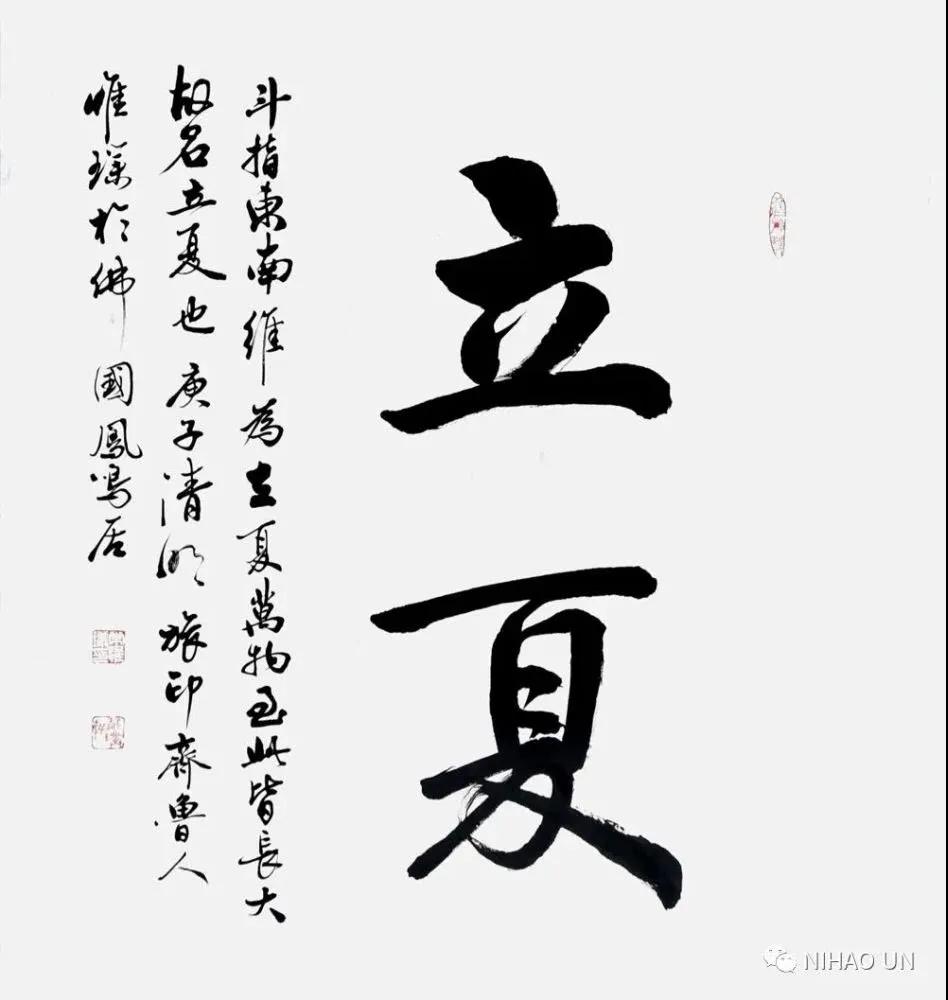 立夏
斗指東南維為立夏萬物至此皆長大
故名立夏也庚子清明旅印齊魯人
惟琛於佛國鳳鳴居
NIHAO UN